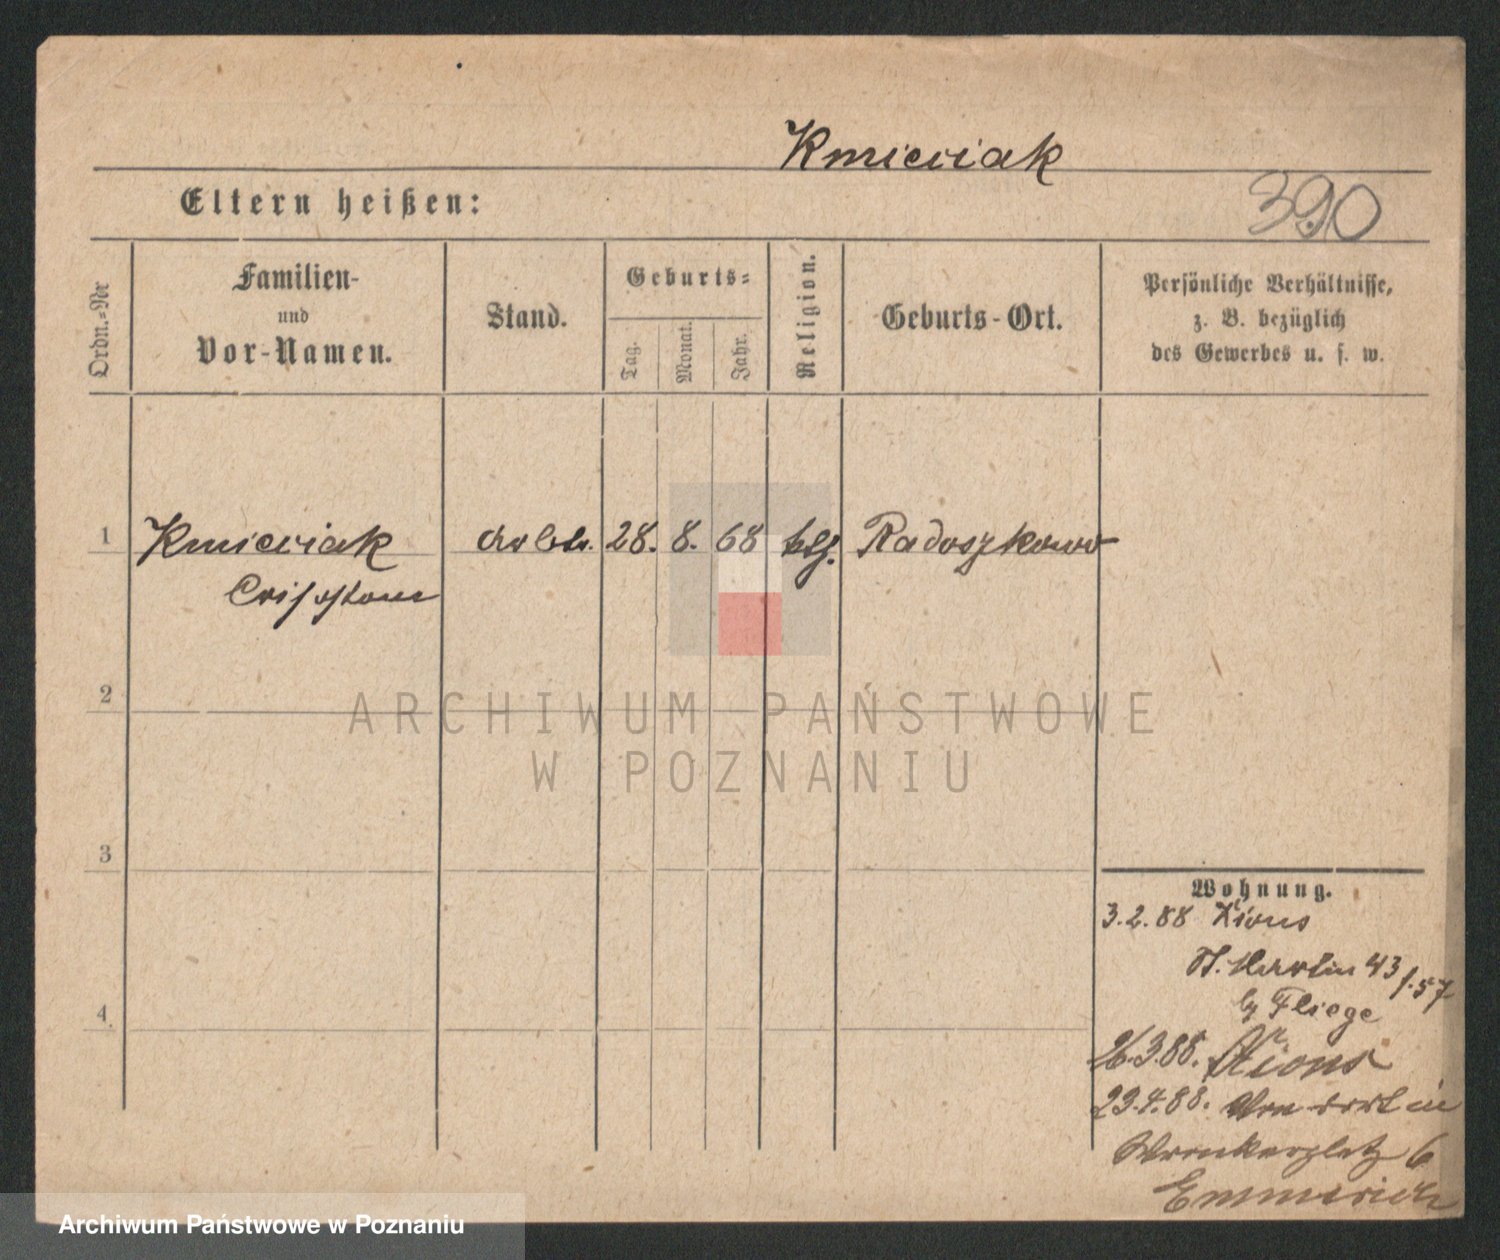 Kmieciak
Eltern heißen:
390
Ordn.=Nr
Familien-
und
Vor-Namen.
Stand.
Geburts=
Tag.
Monat.
Jahr.
Religion.
Geburts-Ort.
Persönliche Verhältnisse,
z. B. bezüglich
des Gewerbes u. s. w.
1 Kmieciak Arbtr. 28. 8. 68 ktl. Radoszkowo
2
ARCHIWUM PAŃSTWOWE
W POZNANIU
3
4
Wohnung.
3.2.88 Xions
St. Martin 43
by Fliege
26.3.88. Xions
23.4.88. Von dort in
Wronkerplatz 6
Emmerich
Archiwum Państwowe w Poznaniu